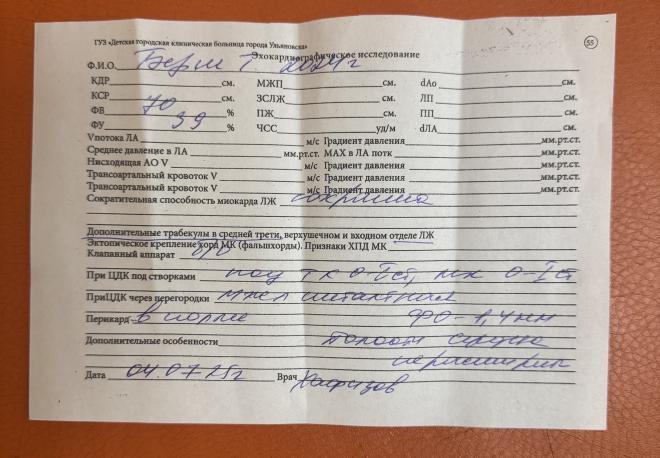 ГУЗ «Детская городская клиническая больница города Ульяновска»
55
Эхокардиографическое исследование
Ф.И.О. Т. 2024г
КДР см. МЖП см. dАо см.
КСР см. ЗСЛЖ см. ЛП см.
ФВ 70 % ПЖ см. ПП см.
ФУ 39 % ЧСС уд/м dЛА см.
Vпотока ЛА м/с Градиент давления мм.рт.ст.
Среднее давление в ЛА мм.рт.ст. МАХ в ЛА поток мм.рт.ст.
Нисходящая АО V м/с Градиент давления мм.рт.ст.
Трансоартальный кровоток V м/с Градиент давления мм.рт.ст.
Трансоартальный кровоток V м/с Градиент давления мм.рт.ст.
Сократительная способность миокарда ЛЖ сохранна
Дополнительные трабекулы в средней трети, верхушечном и входном отделе ЛЖ
Эктопическое крепление хорд МК (фальшхорды). Признаки ХПД МК
Клапанный аппарат б/о
При ЦДК под створками ТК 0-I ст, МК 0-I ст
ПриЦДК через перегородки интактная
Перикард в норме ФО - 1,4 мм
Дополнительные особенности полости сердца
не расширены
Дата 04.07 25г Врач Хафизов